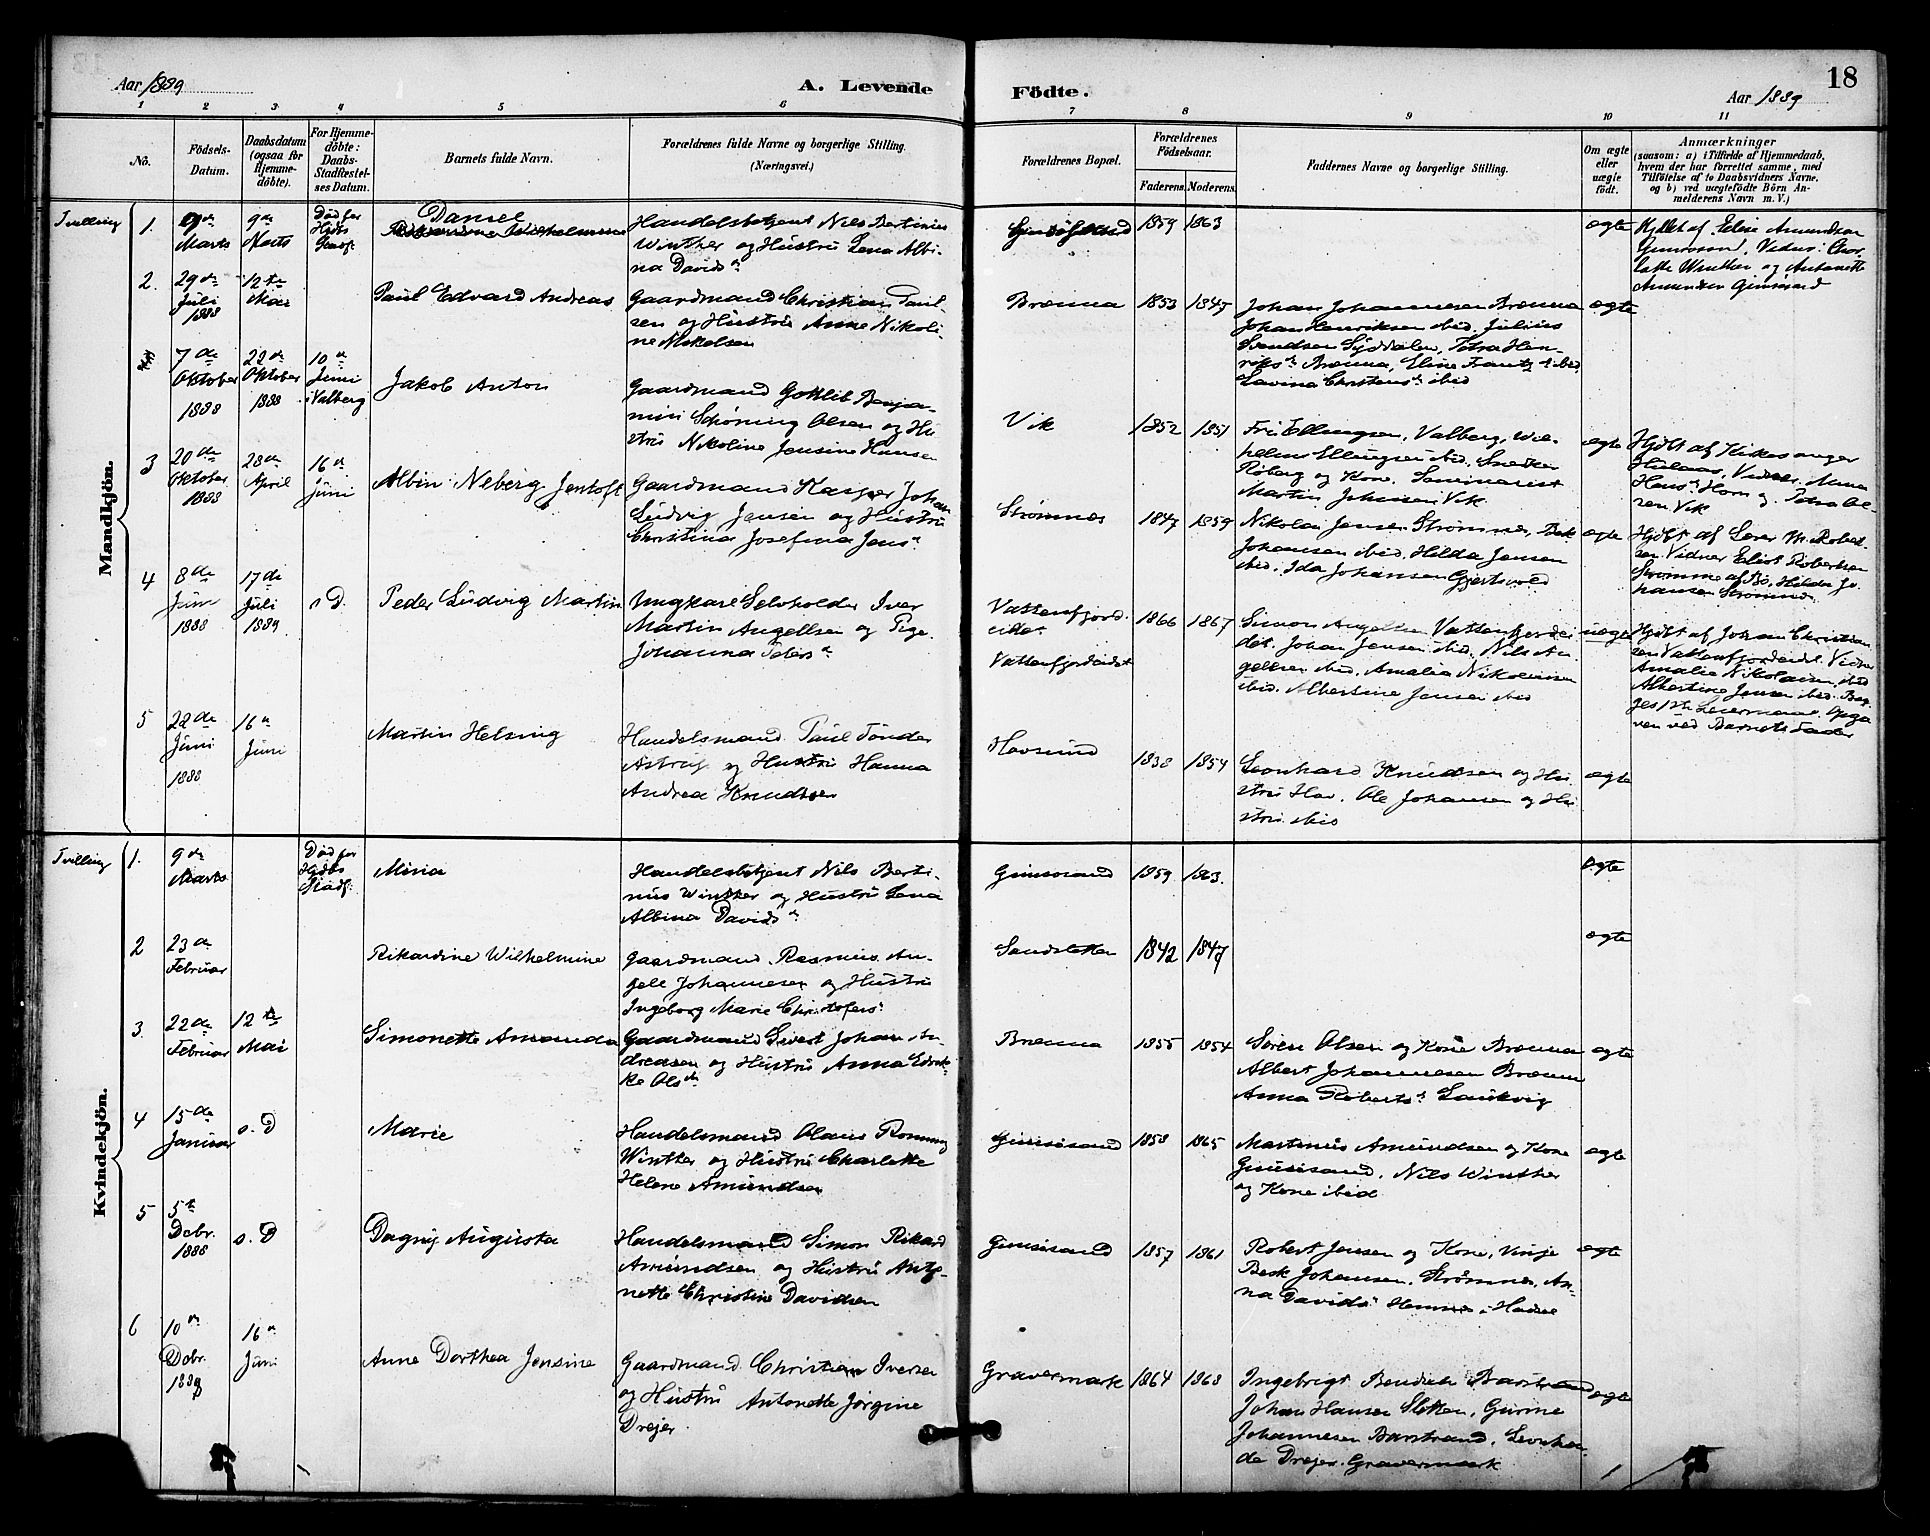 Aar 1889
A. Levende
Födte.
Aar 1889
18
1 2 3 4 5 6 7 8 9 10 11
No.
Födsels-
Datum.
Daabsdatum
(ogsaa for
Hjemme-
döbte).
For Hjemme-
döbte:
Daabs-
Stadfæstel-
ses Datum.
Barnets fulde Navn.
Forældrenes fulde Navne og borgerlige Stilling.
(Næringsvei.)
Forældrenes Bopæl.
Forældrenes
Födselsaar.
Faderens. Moderens.
Faddernes Navne og borgerlige Stilling.
Om ægte
eller
uægte
födt.
Anmærkninger
(saasom: a) i Tilfælde af Hjemmedaab,
hvem der har forrettet samme, med
Tilföielse af to Daabsvidners Navne,
og b) ved uægtefödte Börn An-
melderens Navn m. V.)
Mandkjön.
Tvilling
1.
9de
Marts
9de
Marts
Død før
Hjdbs
Stadf.
Daniel
Handelsbetjent Nils Bertinius
Winther og Hustru Lena Albi-
na Davidsdr
Gimsøsand
1859 1863
ægte
2.
29de
Juli
1888
12te
Mai
Paul Edvard Andreas
Gaardmand Christian Paul-
sen og Hustru Anne Nikoli-
ne Nikolsen
Brænna
1853 1847
Johan Johannesen Brænna
Johan Henriksen ibid. Julius
Svendsen Syddalen, Petra Hen-
riksdr Brænna, Eline Frantzdr ibid
Lavina Christensdr ibid
ægte
7de
Oktober
1888
22de
Oktober
1888
10de
Juni
i Valberg
Jakob Anton
Gaardmand Gotlib Benja-
min Schøning Olsen og Hu
stru Nikoline Jensine Hansen
Vik
1852 1851
Ellingsen, Valberg, Wil-
helm Ellingsen ibid. Snedker
Røberg og Kone. Seminarist
Martin Johnsen Vik
ægte
3
20de
Oktober
1888
28de
April
16de
Juni
Albin Neberg Jentoft
Gaardmand Kasper Johan
Ludvig Jensen og Hustru
Christina Josefina Jensdr
Strømnes
1847 1859
Nikolai Jensen Strømnes, Bek
Johansen ibid. Hilda Jensen
ibid. Ida Johansen Gjertsvold
ægte
4
8de
Juni
1888
17de
Juli
1889
s. D.
Peder Ludvig Martin
Ungkarl Selvholder Iver
Martin Angellsen og Pige
Johanna Pedersdr
Vattenfjord-
eidet
Vattenfjordeidet
1866 1867
Simon Angelsen Vattenfjordei
det. Johan Jensen ibid. Nils An
gelsen ibid. Amalia Nikolaisen
ibid. Albertine Jensen ibid
uægte
5
22de
Juni
1888
16de
Juni
Martin Helsing
Handelsmand Paul Tønder
Astrup og Hustru Hanna
Andrea Knudsen
Hovsund
1838 1854
Leonhard Knudsen og Hu
stru Hov. Ole Johansen og Hu
stru ibid
ægte
Kvindekjön.
Tvilling
1.
9de
Marts
Død før
Hjdbs
Stadf.
Mina
Handelsbetjent Nils Berti-
nius Winther og Hustru Lena
Albina Davidsdr
Gimsøsand
1859 1863.
ægte
2
23de
Februar
Rikardine Wilhelmine
Gaardmand Rasmus An-
gell Johannesen og Hustru
Ingeborg Marie Christofersdr
Sandsletten
1842 1847
ægte
3.
22de
Februar
12te
Mai
Simonette Amanda
Gaardmand Sivert Johan An-
dreasen og Hustru Anna Edvik-
ke Olsdr
Brenna
1855 1854
Søren Olsen og Kone Brenna
Albert Johannesen Brenna
Anna Robertsdr Saukvig
ægte
4
15de
Januar
s. D
Marie
Handelsmand Olaus Ronning
Winther og Hustru Charlotte
Helene Amundsen
Gimsøsand
1858 1865
Martinus Amundsen og Kone
Gimsøsand, Nils Winther
og Kone ibid
ægte
5
5te
Debr.
1888
s. D
Dagny Augusta
Handelsmand Simon Rikard
Amundsen og Hustru Anto-
nette Christine Davidsen
Gimsøsand
1857 1861
Robert Jensen og Kone, Vinje
Bek Johansen, Strømnes, An-
na Davidsdr
ægte
6
10de
Debr.
1888
16de
Juni
Anne Dorthea Jensine
Gaardmand Christian Iversen
og Hustru Antonette Jørgine
Drejer
Gravermark
1864 1868
Ingebrigt Bendiksen Barstrand
Johan Hansen Sletten, Gurine
Johannesen Barstrand, Leonhar-
de Drejer Gravermark
ægte